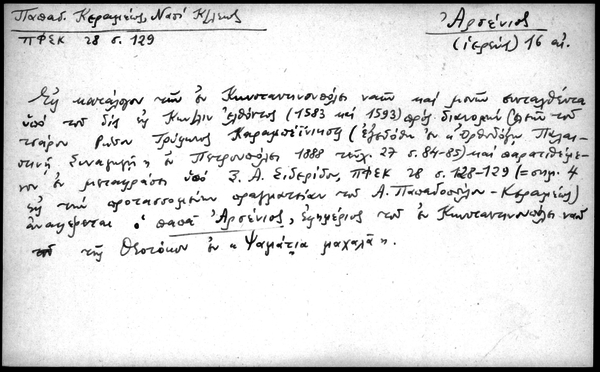 Παπαδ. Κεραμέως, Ναοί Κ/λεως
ΠΦΕΚ 28 σ. 129
Ἀρσένιος
(ἱερεύς) 16 αἰ.
Εἰς κατάλογον τῶν ἐν Κωνσταντινουπόλει ναῶν καί μονῶν συνταχθέντα
ὑπό τοῦ δίς εἰς Κων/λιν ἐλθόντος (1583 καί 1593) πρός διανομήν τοῦ
τσάρου Ρώσου Τρύφωνος Καραμπέϊνικωφ (ἐξεδόθη ἐν "Ὀρθοδόξῳ Παλαι-
στινῇ Συναγωγῇ" ἐν Πετρουπόλει 1888 τεῦχ. 27 σ. 84-85) καί παρατιθέμε-
νον ἐν μεταφράσει ὑπό Ξ. Α. Σιδερίδου, ΠΦΕΚ 28 σ. 128-129 (= σημ. 4
εἰς τήν προτασσομένην πραγματείαν τοῦ Α. Παπαδοπούλου - Κεραμέως)
ἀναφέρεται ὁ παπᾶ Ἀρσένιος, ἐφημέριος τοῦ ἐν Κωνσταντινουπόλει ναοῦ
τῆς Θεοτόκου ἐν "Ψαμάτια μαχαλᾶ".